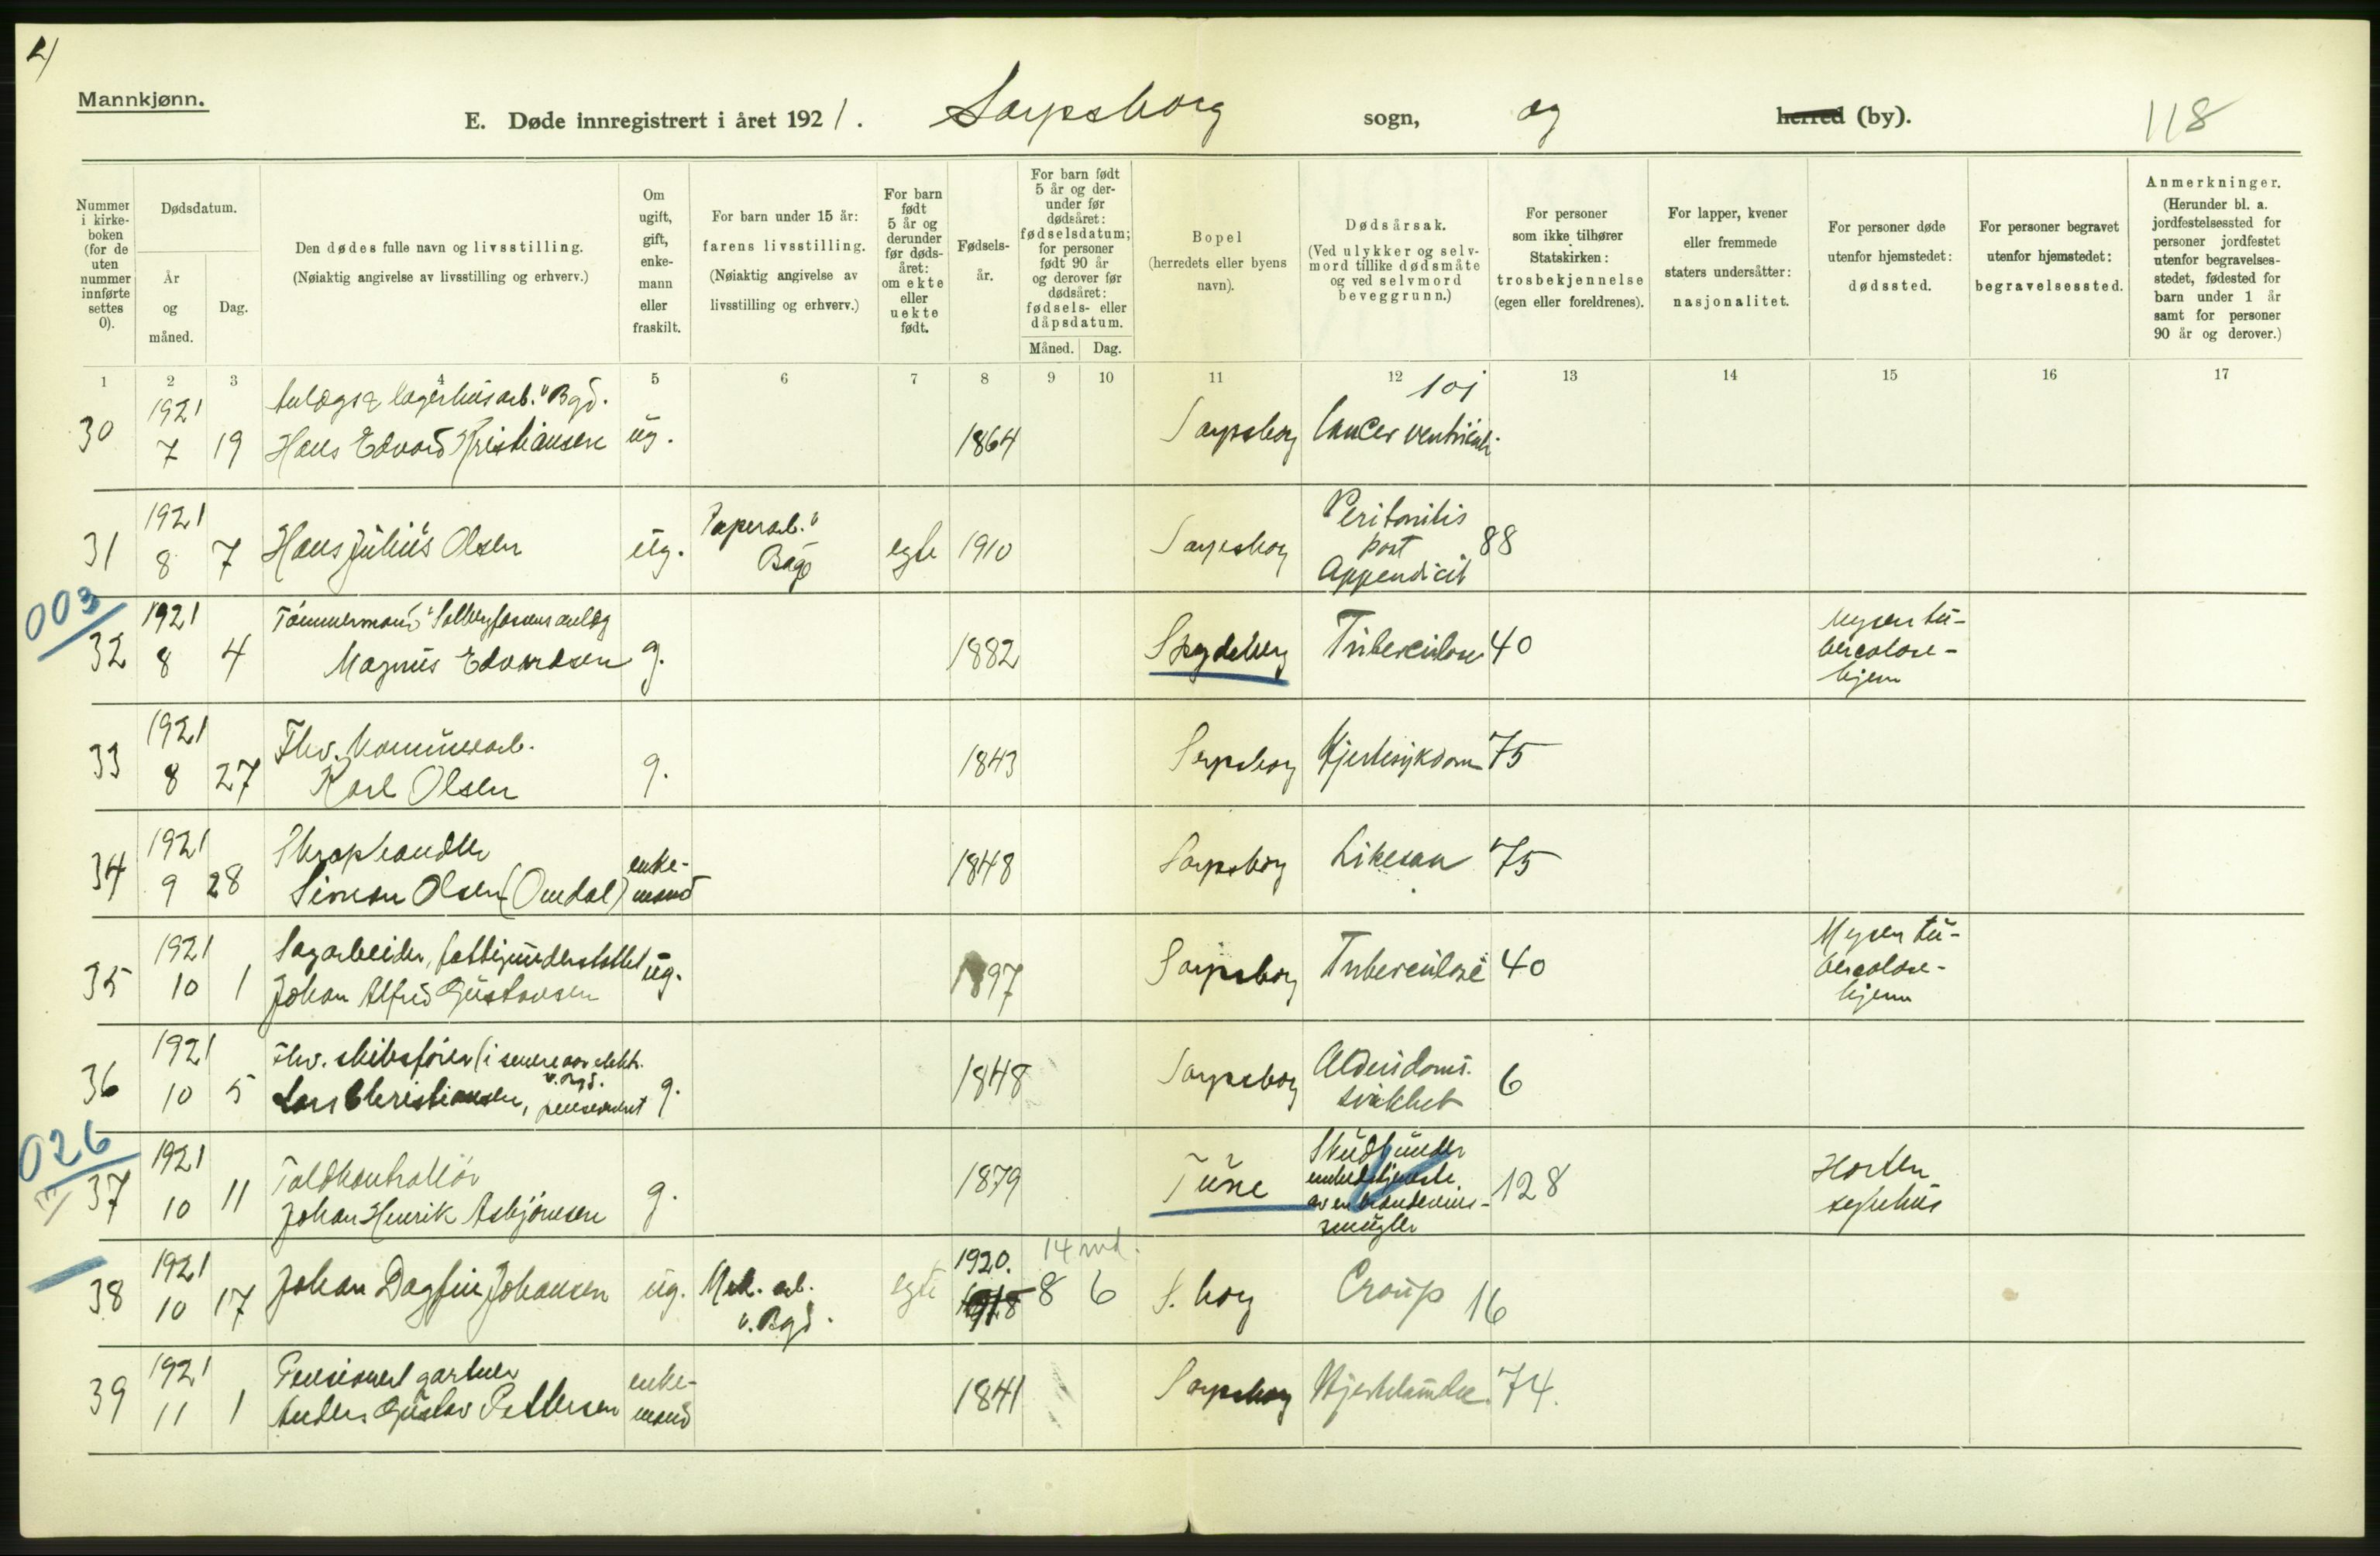 4)
Mannkjønn.
E. Døde innregistrert i året 1921. Sarpsborg sogn, og herred (by). 118
Nummer i kirkeboken (for de uten nummer innførte settes 0).
Dødsdatum.
År og måned.
Dag.
Den dødes fulle navn og livsstilling.
(Nøiaktig angivelse av livsstilling og erhverv.)
Om ugift, gift, enkemann eller fraskilt.
For barn under 15 år:
farens livsstilling.
(Nøiaktig angivelse av livsstilling og erhverv.)
For barn født 5 år og derunder før dødsåret: om ekte eller uekte født.
Fødselsår.
For barn født 5 år og derunder før dødsåret: fødselsdatum; for personer født 90 år og derover før dødsåret: fødsels- eller dåpsdatum.
Måned. Dag.
Bopel
(herredets eller byens navn).
Dødsårsak.
(Ved ulykker og selvmord tillike dødsmåte og ved selvmord beveggrunn.)
For personer som ikke tilhører Statskirken:
trosbekjennelse
(egen eller foreldrenes).
For lapper, kvener eller fremmede staters undersåtter:
nasjonalitet.
For personer døde utenfor hjemstedet:
dødssted.
For personer begravet utenfor hjemstedet:
begravelsessted.
Anmerkninger.
(Herunder bl. a. jordfestelsessted for personer jordfestet utenfor begravelsesstedet, fødested for barn under 1 år samt for personer 90 år og derover.)
1 2 3 4 5 6 7 8 9 10 11 12 13 14 15 16 17
Anlægs & lagerhusarb. v Bgd. 101
30 1921 7 19 Hans Edvard Kristiansen ug. 1864 Sarpsborg Cancer ventriculi
31 1921 8 7 Hans Julius Olsen ug. Paperarb. v Bgd egte 1910 Sarpsborg Peritonitis post Appendicit 88
003
32 1921 8 4 Tömmermand v Solbergfossens anlæg
Magnus Edvardsen g. 1882 Skydeberg Tuberculose 40 Mysen tuberculosehjem
33 1921 8 27 Fhv. kommunearb.
Karl Olsen g. 1843 Sarpsborg Hjertesykdom 75
34 1921 9 28 Skraphandler
Simon Olsen (Omdal) enkemand 1848 Sarpsborg Likesaa 75
35 1921 10 1 Sagarbeider, fattigunderstöttet
Johan Alfred Gustavsen ug. 1897 Sarpsborg Tuberculose 40 Mysen tuberculosehjem
36 1921 10 5 Fhv. skibsförer (i senere aar elektr. v. Bgd.
Lars Christiansen, pensioneret g. 1848 Sarpsborg Alderdomssvakhet 6
026
37 1921 10 11 Toldkontrollör
Johan Henrik Asbjörnsen g. 1879 Tune Skudt under embedstjeneste av en brændevinssmugler 128 Horten sykehus
38 1921 10 17 Johan Dagfin Johansen ug. Mek. arb. v. Bgd. egte 1920. 1918 14 md. 8 6 S.borg Croup 16
39 1921 11 1 Pensionert gartner
Anders Gustav Pettersen enkemand 1841 Sarpsborg Hjertelamelse 74.